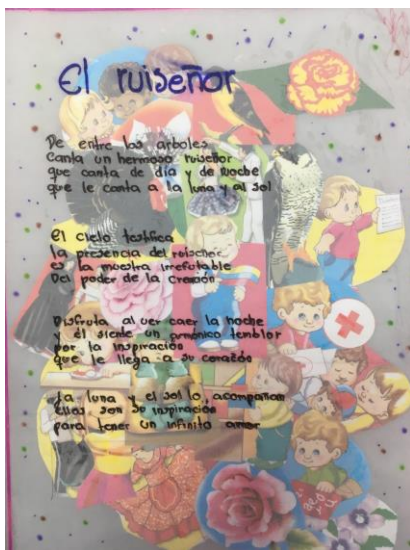 El ruiseñor
De entre los arboles
Canta un hermoso ruiseñor
que canta de día y de noche
que le canta a la luna y al sol
El cielo testifica
la presencia del ruiseñor
es la muestra irrefutable
Del poder de la Creación
Disfruta al ver caer la noche
y él siente un armónico temblor
por la inspiración
que le llega a su corazón
La luna y el sol lo acompañan
Ellos son su inspiración
para tener un infinito amor